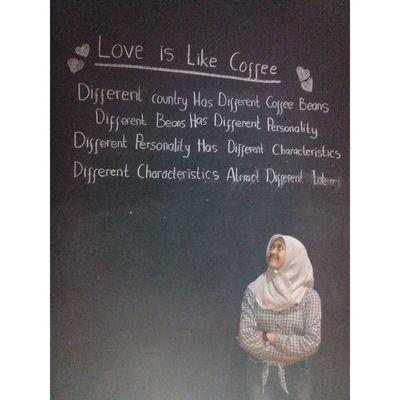 Love is Like Coffee
Different country Has Different Coffee Beans
Different Beans Has Different Personality
Different Personality Has Different Characteristics
Different Characteristics Different